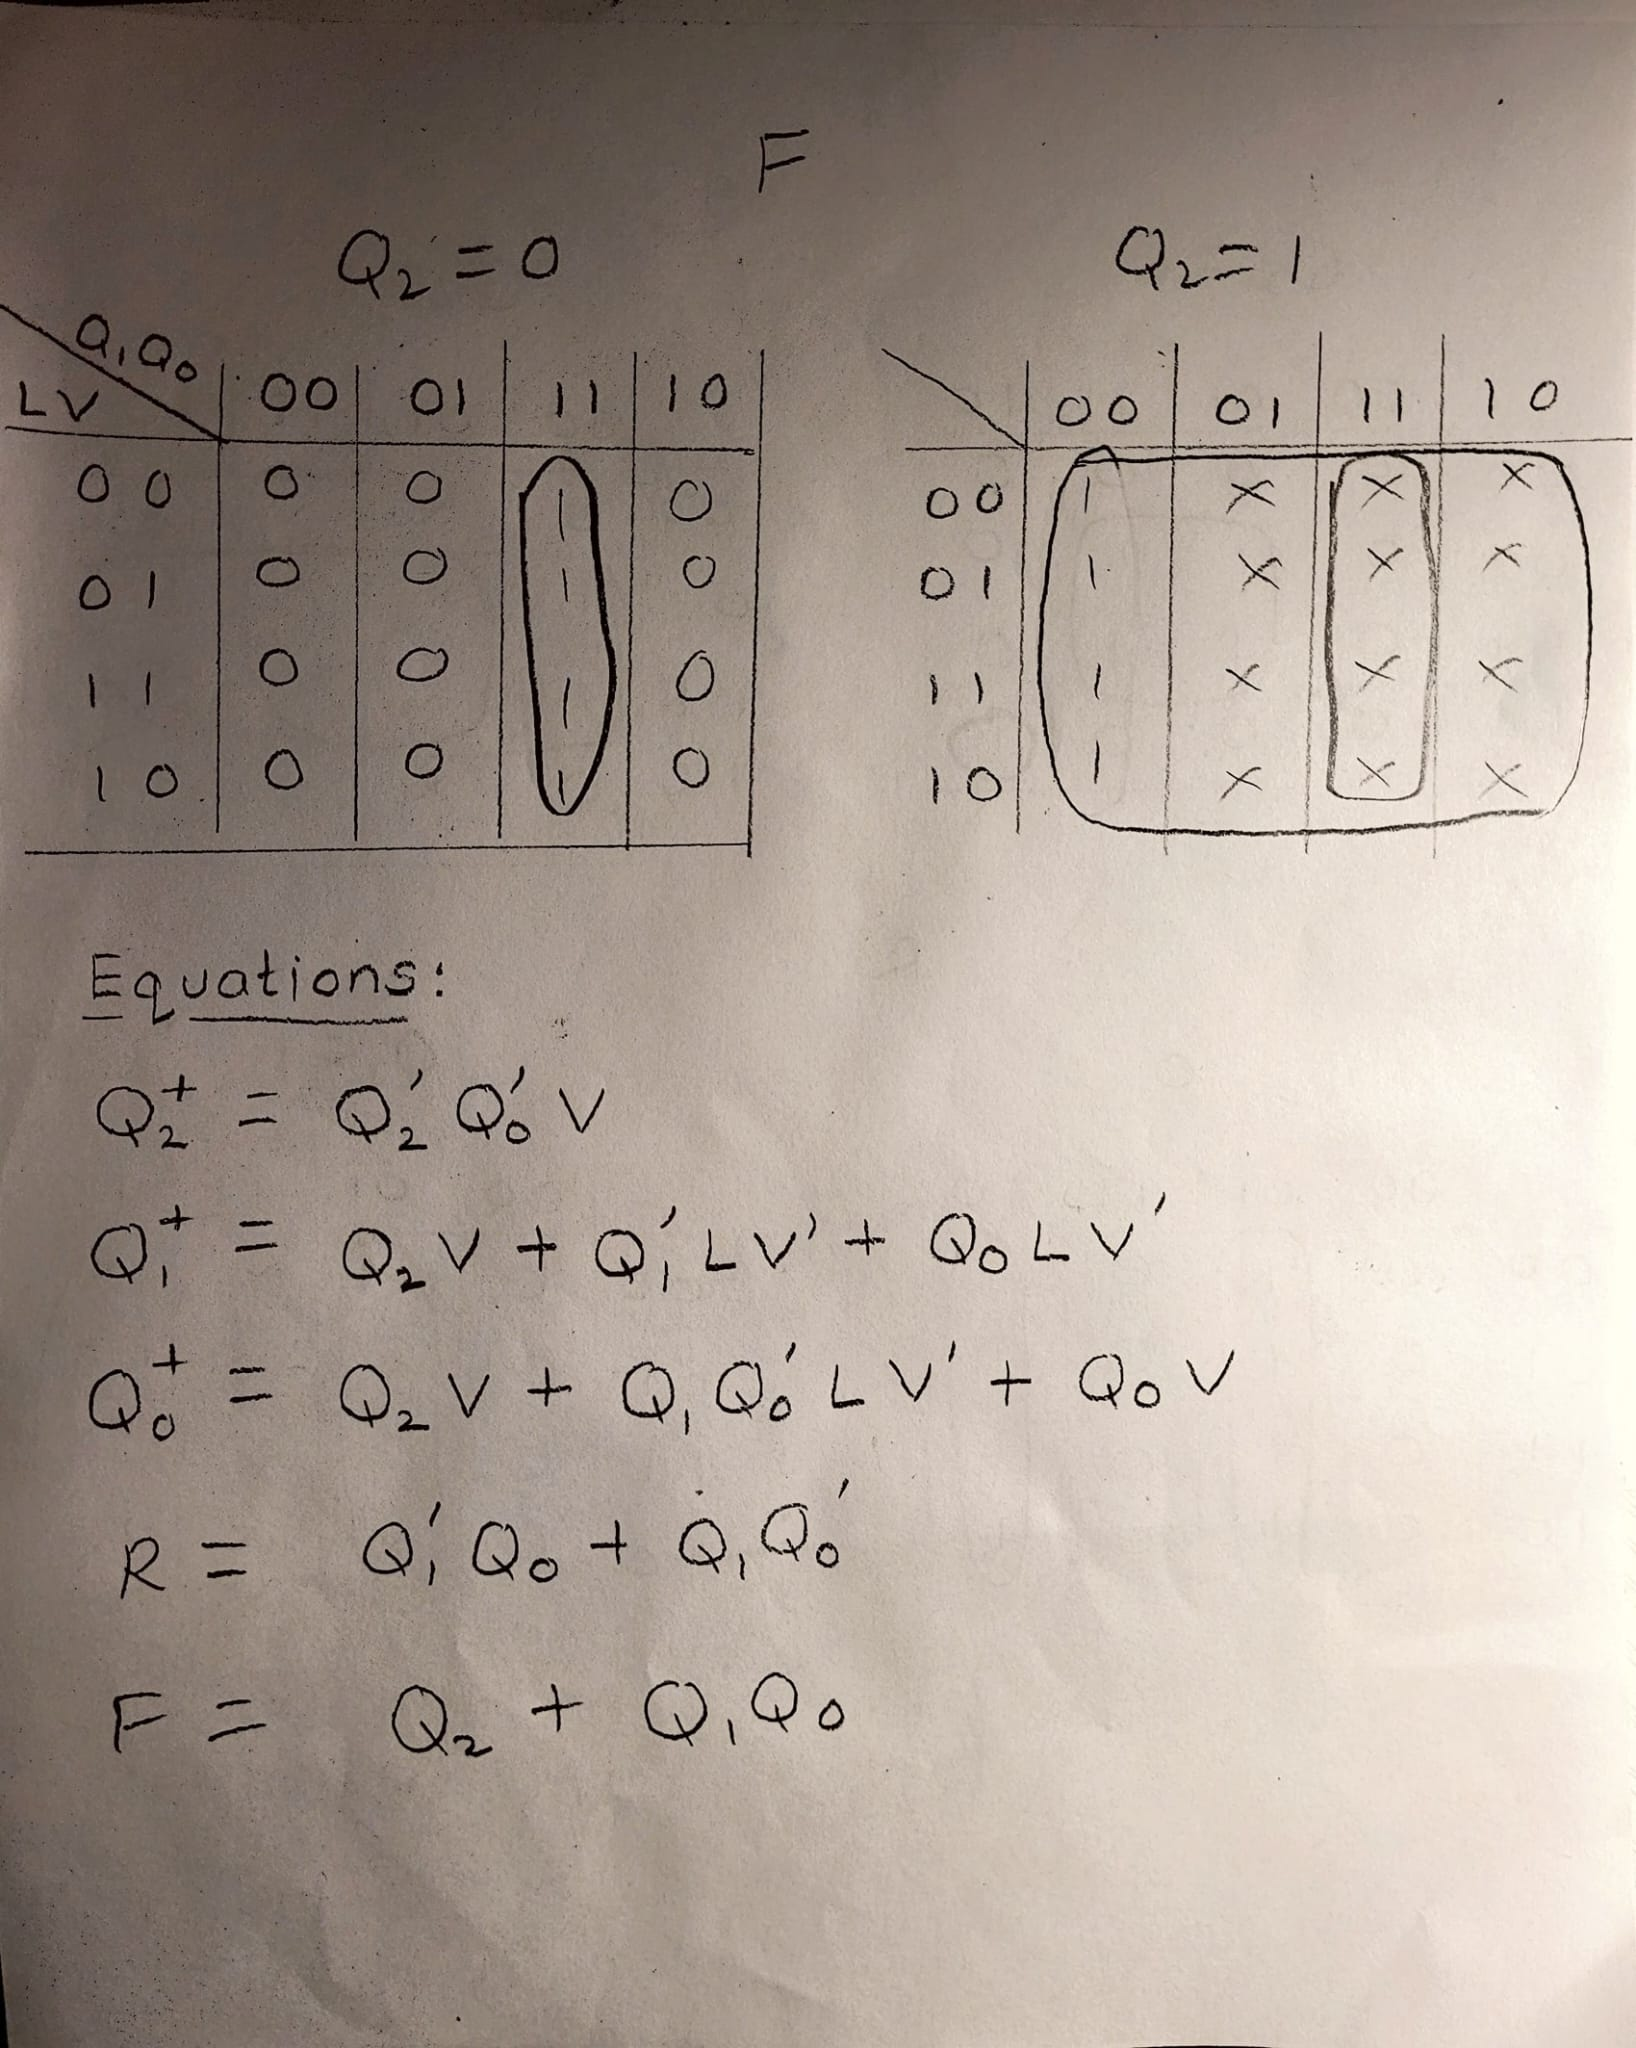 F
Q₂ = 0
Q₂ = 1
Q₁Q₀
LV 00 01 11 10
00 01 11 10
00 0 0 1 0
01 0 0 1 0
11 0 0 1 0
10 0 0 1 0
00 1 X X X
01 1 X X X
11 1 X X X
10 1 X X X
Equations:
Q₂⁺ = Q₂' Q₀' V
Q₁⁺ = Q₂ V + Q₁' L V' + Q₀ L V'
Q₀⁺ = Q₂ V + Q₁ Q₀' L V' + Q₀ V
R = Q₁' Q₀ + Q₁ Q₀'
F = Q₂ + Q₁ Q₀